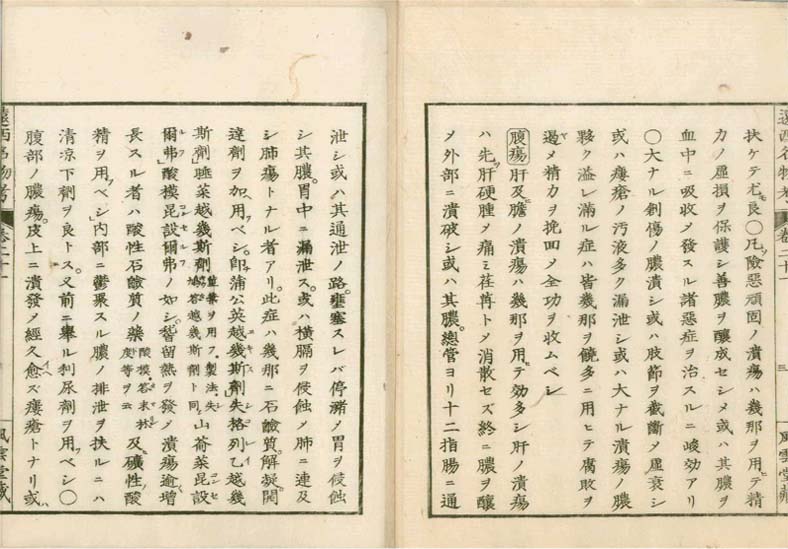 扶ケテ尤良〇凡險惡頑固ノ潰瘍ハ幾那ヲ用テ精
力ノ虚損ヲ保護シ善膿ヲ釀成セシメ或ハ其膿ヲ
血中ニ吸收メ發スル諸惡症ヲ治スルニ峻効アリ
〇大ナル創傷ノ膿潰シ或ハ肢節ヲ截斷メ虚衰シ
或ハ瘻瘡ノ汚液多ク漏泄シ或ハ大ナル潰瘍ノ膿
夥ク溢レ滿ル症ハ皆幾那ヲ饒多ニ用ヒテ腐敗ヲ
遏メ精力ヲ挽回メ全功ヲ收ムベシ
腹瘍肝及膽ノ潰瘍ハ幾那ヲ用テ効多シ肝ノ潰瘍
ハ先肝硬腫メ痛ミ荏苒トメ消散セズ終ニ膿ヲ釀
メ外部ニ潰破シ或ハ其膿總管ヨリ十二指腸ニ通
遠西名物考 卷二十一 三 風雲堂藏
泄シ或ハ其通泄ノ路壅塞スレバ停瀦メ胃ヲ侵蝕
シ其膿胃中ニ漏泄ス或ハ横膈ヲ侵蝕メ肺ニ連及
シ肺瘍トナル者アリ此症ハ幾那ニ石鹼質解凝開
達劑ヲ加用ベシ即蒲公英越幾斯劑失格列乙越幾
斯劑睡菜越幾斯劑葉ヲ用フ製法失格列乙越幾斯劑ト同シ山葵菜昆設
爾弗酸模昆設爾弗ノ如シ瘀留熱ヲ發メ潰瘍逾增
長スル者ハ酸性石鹼質ノ藥及礦性酸
精ヲ用ベシ内部ニ鬱聚スル膿ノ排泄ヲ扶ルニハ
清涼下劑ヲ良トス又前ニ擧ル利尿劑ヲ用ベシ〇
腹部ノ膿瘍皮上ニ潰發メ經久愈ズ瘻瘡トナリ或
遠西名物考 卷二十一 風雲堂藏